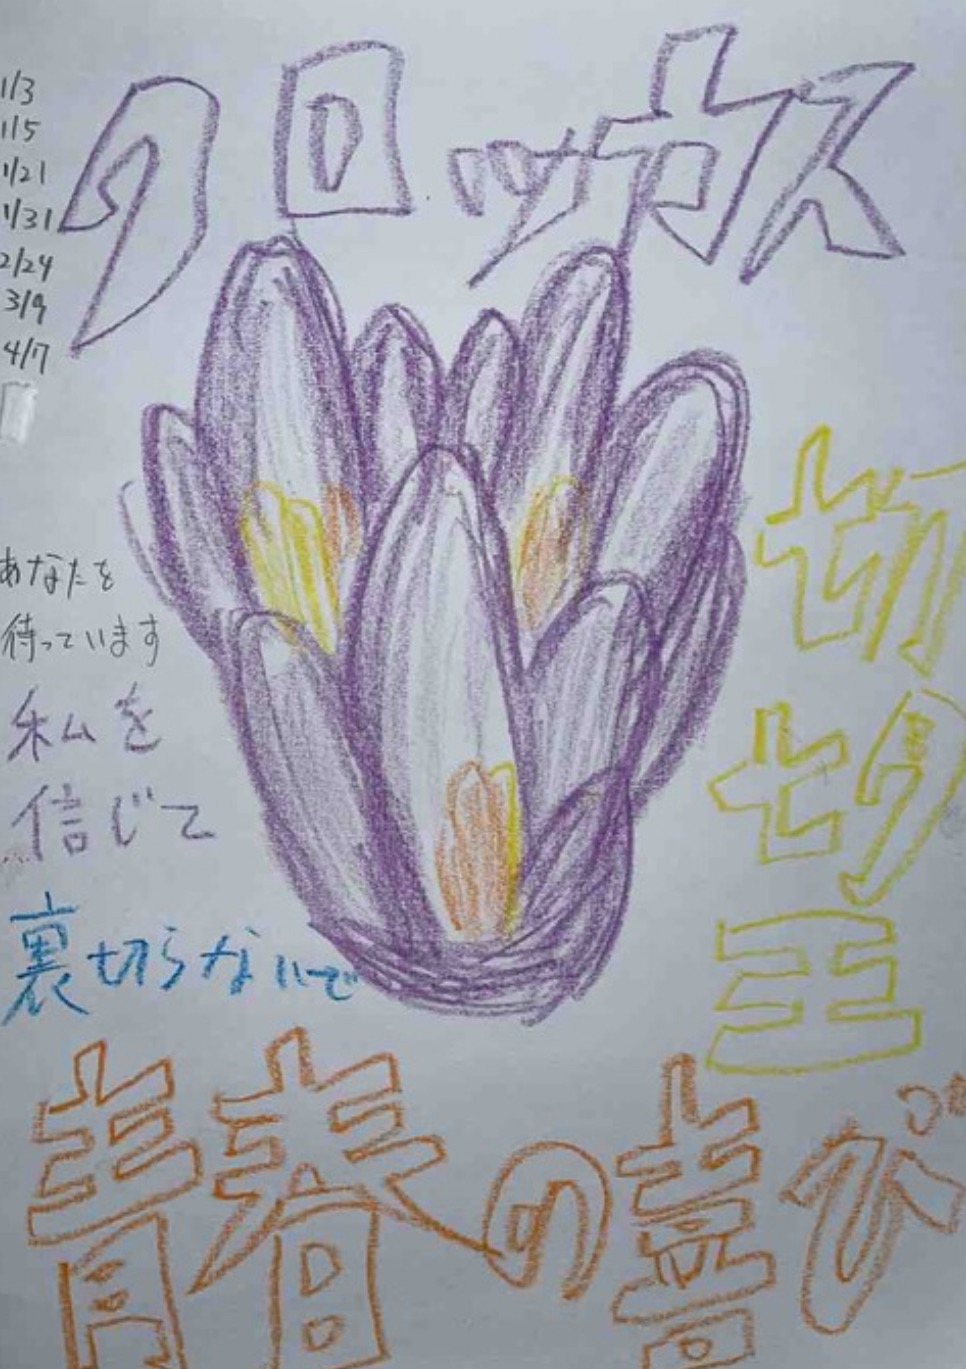 クロッカス
1/3
1/5
1/21
1/31
2/24
3/9
4/7
あなたを
待っています
私を
信じて
裏切らないで
切
切
王
青春の喜び